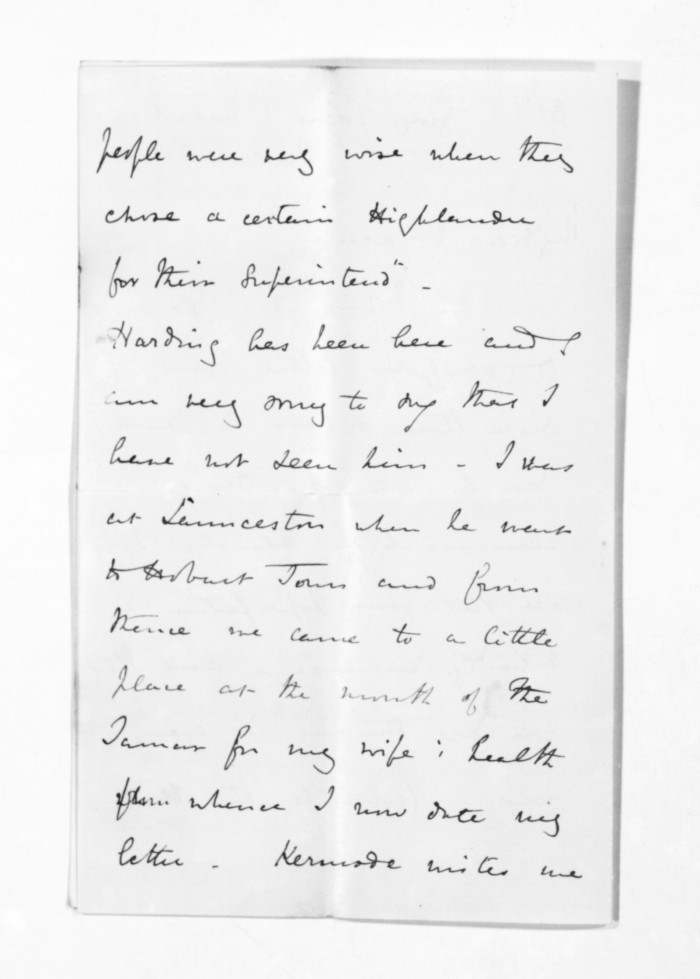 people were very wise when they
chose a certain Highlander
for their Superintend"_
Harding has been here and I
am very sorry to say that I
have not seen him - I was
at Launceston when he went
to Hobart Town and from
thence we came to a little
place at the mouth of the
Tamar for my wife's health
from whence I now date my
letter - Kermode writes me